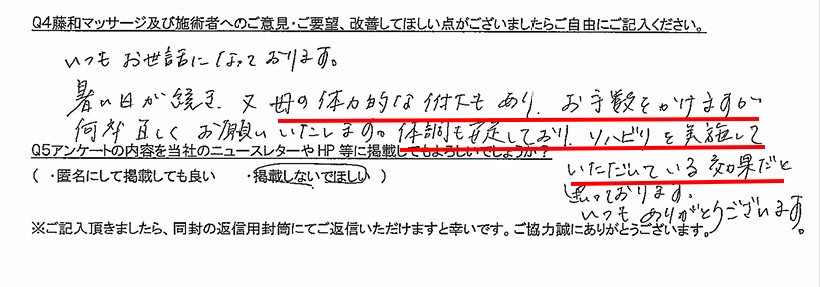 Q4藤和マッサージ及び施術者へのご意見・ご要望、改善してほしい点がございましたらご自由にご記入ください。
いつもお世話になっております。
暑い日が続き、又母の体力的な低下もあり、お手数をかけますが
何卒宜しくお願いいたします。体調も安定しており、リハビリを実施して
Q5アンケートの内容を当社のニュースレターやHP等に掲載してもよろしいでしょうか？
いただいている効果だと
（ ・匿名にして掲載しても良い ・掲載しないでほしい ）
思っております。
いつもありがとうございます。
※ご記入頂きましたら、同封の返信用封筒にてご返信いただけますと幸いです。ご協力誠にありがとうございます。